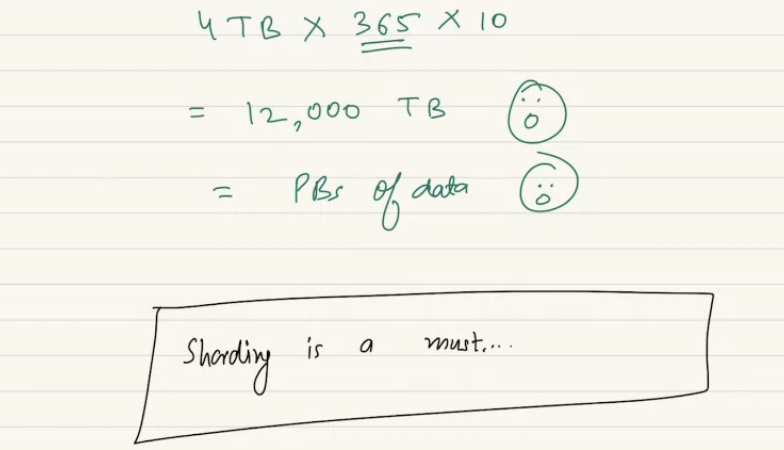 4 TB X 365 X 10
= 12,000 TB
= PBs of data
Sharding is a must....